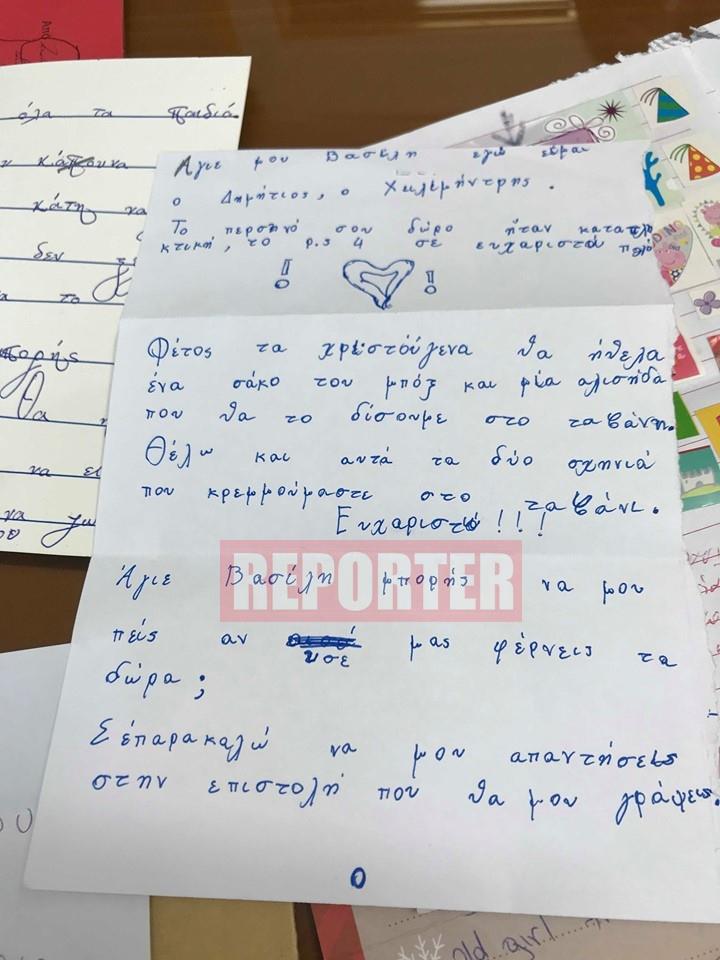 Από
όλα τα παιδιά.
κάποινα
κάτη να
δεν
το
πορής
θα
να
να γω
Αγιε μου Βασελη εγώ είμαι
ο Δημήτιος, ο Χελεμήντρης.
Το περσηνό σου δώρο ήταν καταπλι
κτική, το p.s 4 σε ευχαριστού πολύ
! !
Φέτος τα χρεστόύγενα θα ήθελα
ένα σάκο του μπόξ και μία αλισήδα
που θα το δίσουμε στο ταβάνη.
Θέλω και αυτά τα δύο σχηνιά
που κρεμμούμαστε στο ταβάνι.
Ευχαριστώ!!!
REPORTER
Άγιε Βασίλη μπορής να μου
πείς αν εσύ μας φέρνεις τα
δώρα;
Σέπαρακαλώ να μου απαντήσεις
στην επιστολή που θα μου γράψεις.
ο
old girl